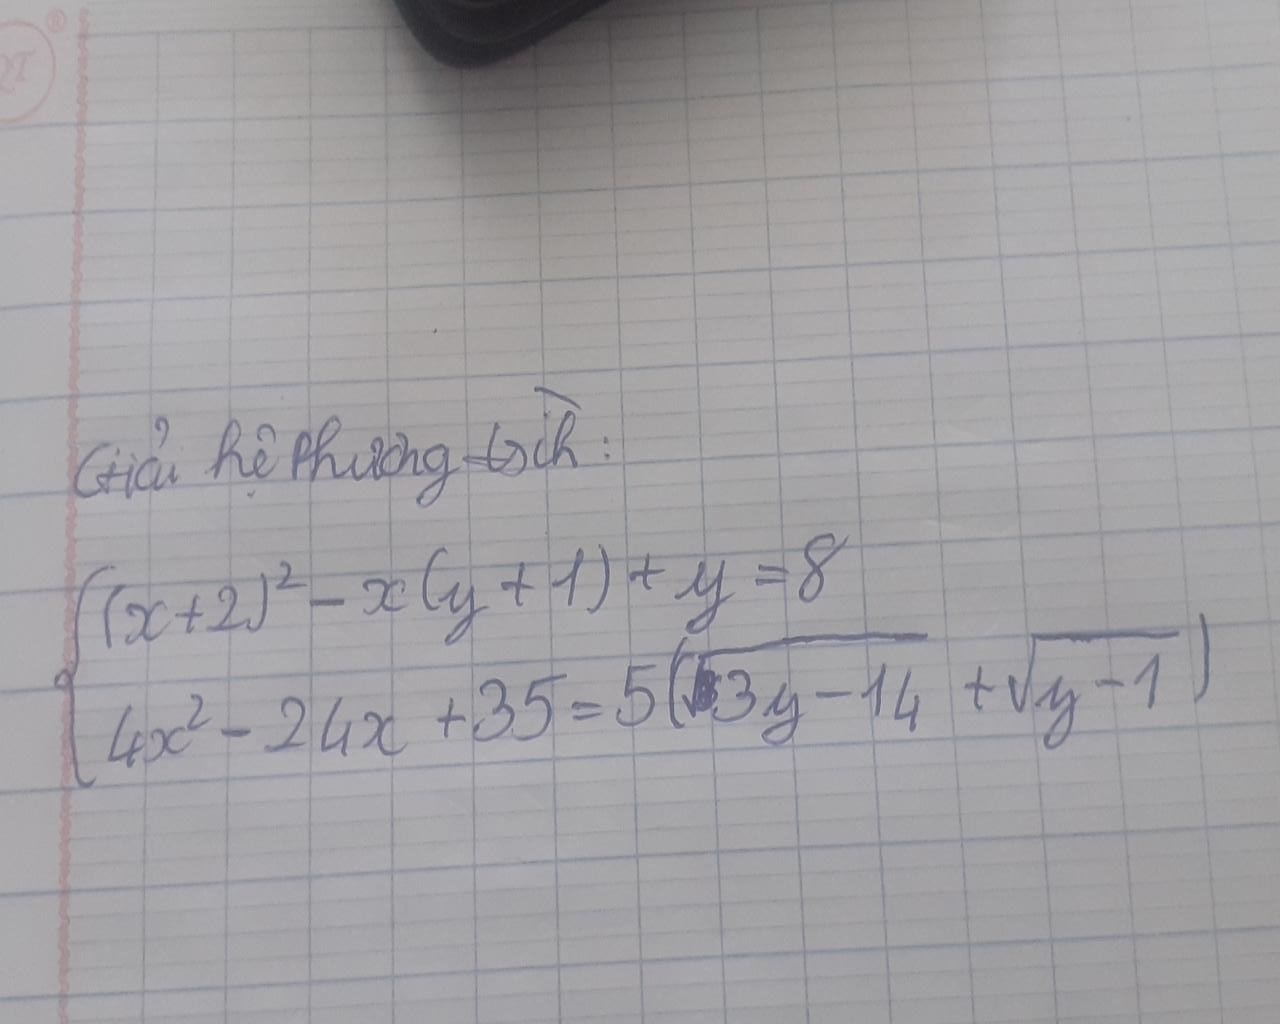 Giải hệ phương trình:
(x+2)² - x(y+1) + y = 8
4x² - 24x + 35 = 5(√3y-14 + √y-1)